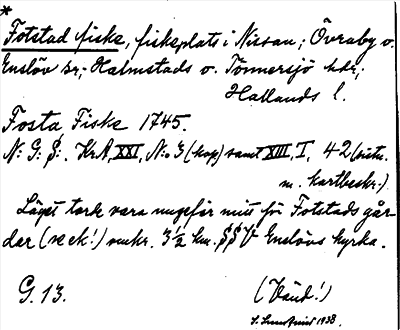 *
Fotstad fiske, fiskeplats i Nissan; Övraby o.
Enslöv sr; Halmstads o. Tönnersjö hdr;
Hallands l.
Fosta Fiske 1745.
N: G: S: KrA XXI, No 3 (kop) samt XIII, I, 42 (
m. kartbeskr.)
Läget torde vara ungefär mitt för Fotstads går-
dar (se ek!) omkr. 3½ km. SSV Enslövs kyrka.
G. 13.
(Vänd!)
1938.